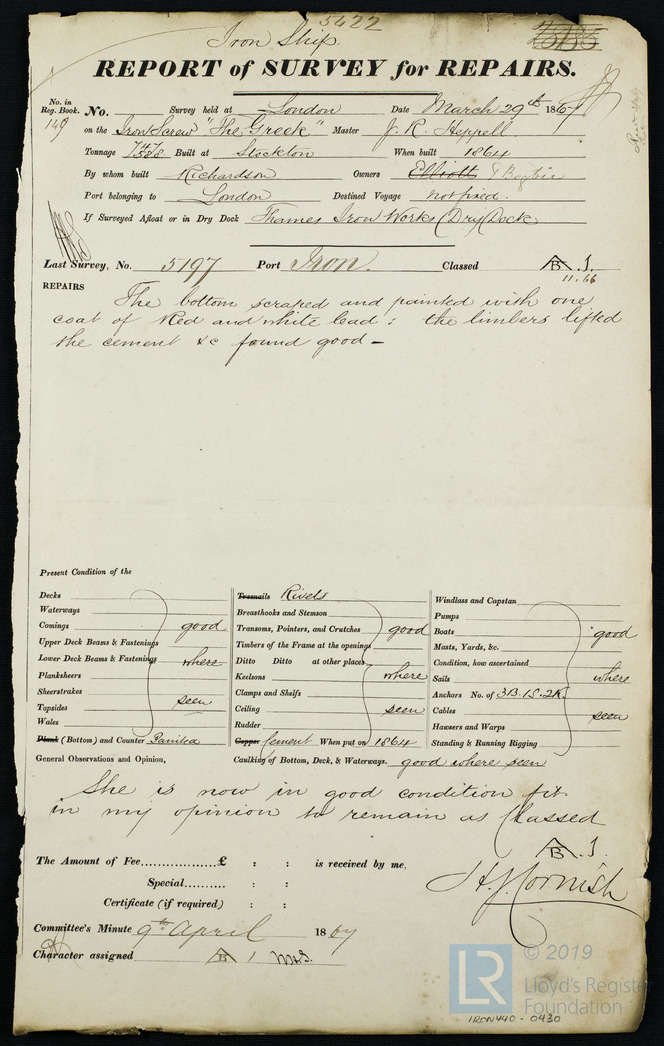 5422
Iron Ship.
REPORT of SURVEY for REPAIRS.
No. in Reg. Book. 149 No. Survey held at London Date March 29th 1867
on the Iron Screw "The Greek" Master J. R. Heppell
Tonnage Built at Stockton When built 1864
By whom built Richardson Owners Elliott
Port belonging to London Destined Voyage not fixed.
If Surveyed Afloat or in Dry Dock Thames Iron Works (Dry Dock
Last Survey, No. 5197 Port Iron. Classed B. 1.
11.66
REPAIRS
The bottom scraped and painted with one
coat of Red and white lead: the limbers lifted
the cement &c found good -
Present Condition of the
Decks
Waterways
Comings good
Upper Deck Beams & Fastenings
Lower Deck Beams & Fastenings where
Planksheers
Sheerstrakes
Topsides seen
Wales
Plank (Bottom) and Counter Painted
Treenails Rivets
Breasthooks and Stemson
Transoms, Pointers, and Crutches good
Timbers of the Frame at the openings
Ditto Ditto at other places
Keelsons where
Clamps and Shelfs
Ceiling seen
Rudder
Copper Cement When put on 1864
Windlass and Capstan
Pumps
Boats good
Masts, Yards, &c.
Condition, how ascertained
Sails where
Anchors No. of 3B.1S.2K.
Cables seen
Hawsers and Warps
Standing & Running Rigging
General Observations and Opinion, Caulking of Bottom, Deck, & Waterways. good where seen
She is now in good condition fit
in my opinion to remain as Classed
B. 1.
The Amount of Fee................£ : : is received by me,
Special.......... : :
Certificate (if required) : :
H. J. Cornish
Committee's Minute 9th April 1867
Character assigned B 1
© 2019
LR
Lloyd's Register
Foundation
IRON440 - 0430